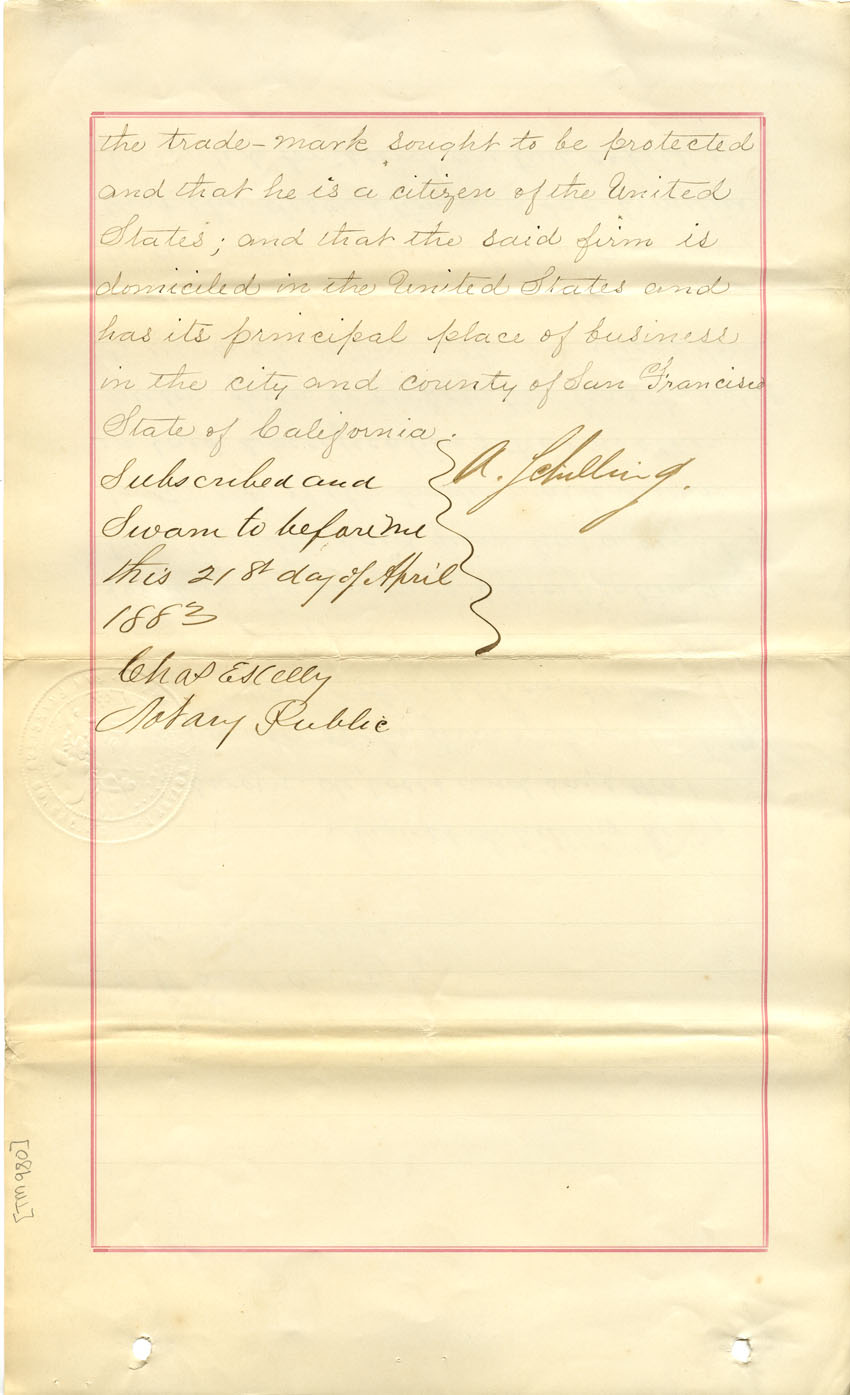 the trade-mark sought to be protected
and that he is a citizen of the United
States; and that the said firm is
domiciled in the United States and
has its principal place of business
in the city and county of San Francisco
State of California.
Subscribed and
Sworn to before me
this 21st day of April
1883
A. Schilling.
Chas E Kelly
Notary Public
[TM 980]